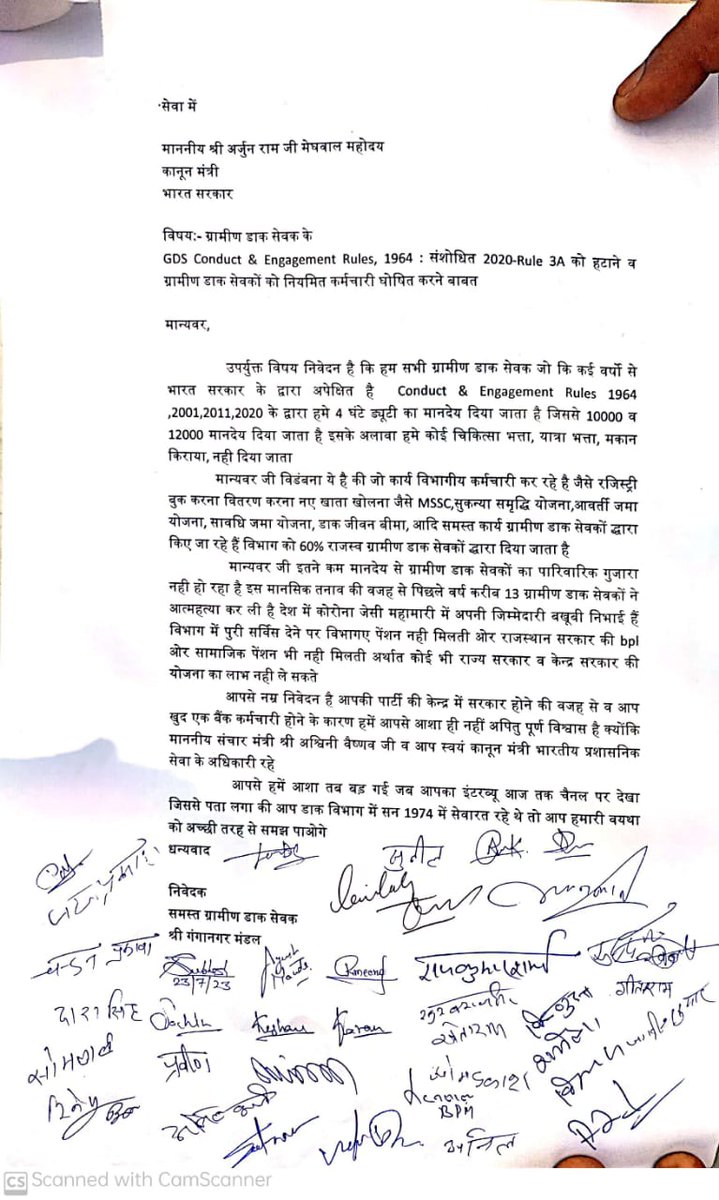 सेवा में
माननीय श्री अर्जुन राम जी मेघवाल महोदय
कानून मंत्री
भारत सरकार
विषय:- ग्रामीण डाक सेवक के
GDS Conduct & Engagement Rules, 1964 : संशोधित 2020-Rule 3A को हटाने व
ग्रामीण डाक सेवकों को नियमित कर्मचारी घोषित करने बाबत
मान्यवर,
उपर्युक्त विषय निवेदन है कि हम सभी ग्रामीण डाक सेवक जो कि कई वर्षो से
भारत सरकार के द्वारा अपेक्षित है Conduct & Engagement Rules 1964
,2001,2011,2020 के द्वारा हमे 4 घंटे ड्युटी का मानदेय दिया जाता है जिससे 10000 व
12000 मानदेय दिया जाता है इसके अलावा हमे कोई चिकित्सा भत्ता, यात्रा भत्ता, मकान
किराया, नही दिया जाता
मान्यवर जी विडंबना ये है की जो कार्य विभागीय कर्मचारी कर रहे है जैसे रजिस्ट्री
बुक करना वितरण करना नए खाता खोलना जैसे MSSC,सुकन्या समृद्धि योजना,आवर्ती जमा
योजना, सावधि जमा योजना, डाक जीवन बीमा, आदि समस्त कार्य ग्रामीण डाक सेवकों द्धारा
किए जा रहे हैं विभाग को 60% राजस्व ग्रामीण डाक सेवकों द्धारा दिया जाता है
मान्यवर जी इतने कम मानदेय से ग्रामीण डाक सेवकों का पारिवारिक गुजारा
नही हो रहा है इस मानसिक तनाव की वजह से पिछले वर्ष करीब 13 ग्रामीण डाक सेवकों ने
आत्महत्या कर ली है देश में कोरोना जेसी महामारी में अपनी जिम्मेदारी बखूबी निभाई हैं
विभाग में पुरी सर्विस देने पर विभागए पेंशन नही मिलती ओर राजस्थान सरकार की bpl
ओर सामाजिक पेंशन भी नही मिलती अर्थात कोई भी राज्य सरकार व केन्द्र सरकार की
योजना का लाभ नही ले सकते
आपसे नम्र निवेदन है आपकी पार्टी की केन्द्र में सरकार होने की वजह से व आप
खुद एक बैंक कर्मचारी होने के कारण हमें आपसे आशा ही नहीं अपितु पूर्ण विश्वास है क्योंकि
माननीय संचार मंत्री श्री अश्विनी वैष्णव जी व आप स्वयं कानून मंत्री भारतीय प्रशासनिक
सेवा के अधिकारी रहे
आपसे हमें आशा तब बड़ गई जब आपका इंटरव्यू आज तक चैनल पर देखा
जिससे पता लगा की आप डाक विभाग में सन 1974 में सेवारत रहे थे तो आप हमारी वयथा
को अच्छी तरह से समझ पाओगे
धन्यवाद
सुनीट
निवेदक
समस्त ग्रामीण डाक सेवक
श्री गंगानगर मंडल
Subhash
23/7/23
राजकुमार शर्मा
दारा सिंह
Keshav
Karan
खेताराम
गीताराम
प्रवीण
ओमप्रकाश
BPM
अनिल
CS Scanned with CamScanner